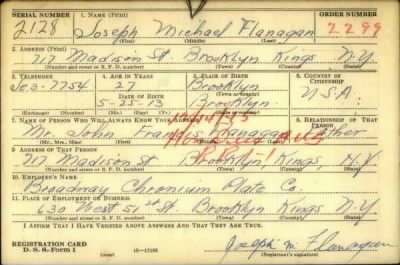 SERIAL NUMBER 1. NAME (Print) ORDER NUMBER
2128 Joseph Michael Flanagan 2299
(First) (Middle) (Last)
2. ADDRESS (Print)
717 Madison St. Brooklyn Kings N.Y.
(Number and street or R. F. D. number) (Town) (County) (State)
3. TELEPHONE 4. AGE IN YEARS 5. PLACE OF BIRTH 6. COUNTRY OF CITIZENSHIP
27 Brooklyn
DATE OF BIRTH (Town or county)
7754 5-25-13 Brooklyn U.S.A.
(Exchange) (Number) (Mo.) (Day) (Yr.) (State or country)
7. NAME OF PERSON WHO WILL ALWAYS KNOW YOUR ADDRESS 8. RELATIONSHIP OF THAT PERSON
Mr. John Francis Flanagan Father
(Mr., Mrs., Miss) (First) (Middle) (Last)
9. ADDRESS OF THAT PERSON
717 Madison St Brooklyn, Kings, N.Y.
(Number and street or R. F. D. number) (Town) (County) (State)
10. EMPLOYER'S NAME
Broadway Chromium Plate Co.
11. PLACE OF EMPLOYMENT OR BUSINESS
630 West 51st St Brooklyn Kings N.Y.
(Number and street or R. F. D. number) (Town) (County) (State)
I AFFIRM THAT I HAVE VERIFIED ABOVE ANSWERS AND THAT THEY ARE TRUE.
REGISTRATION CARD
D. S. S. Form 1 Joseph M Flanagan
(Registrant's signature)